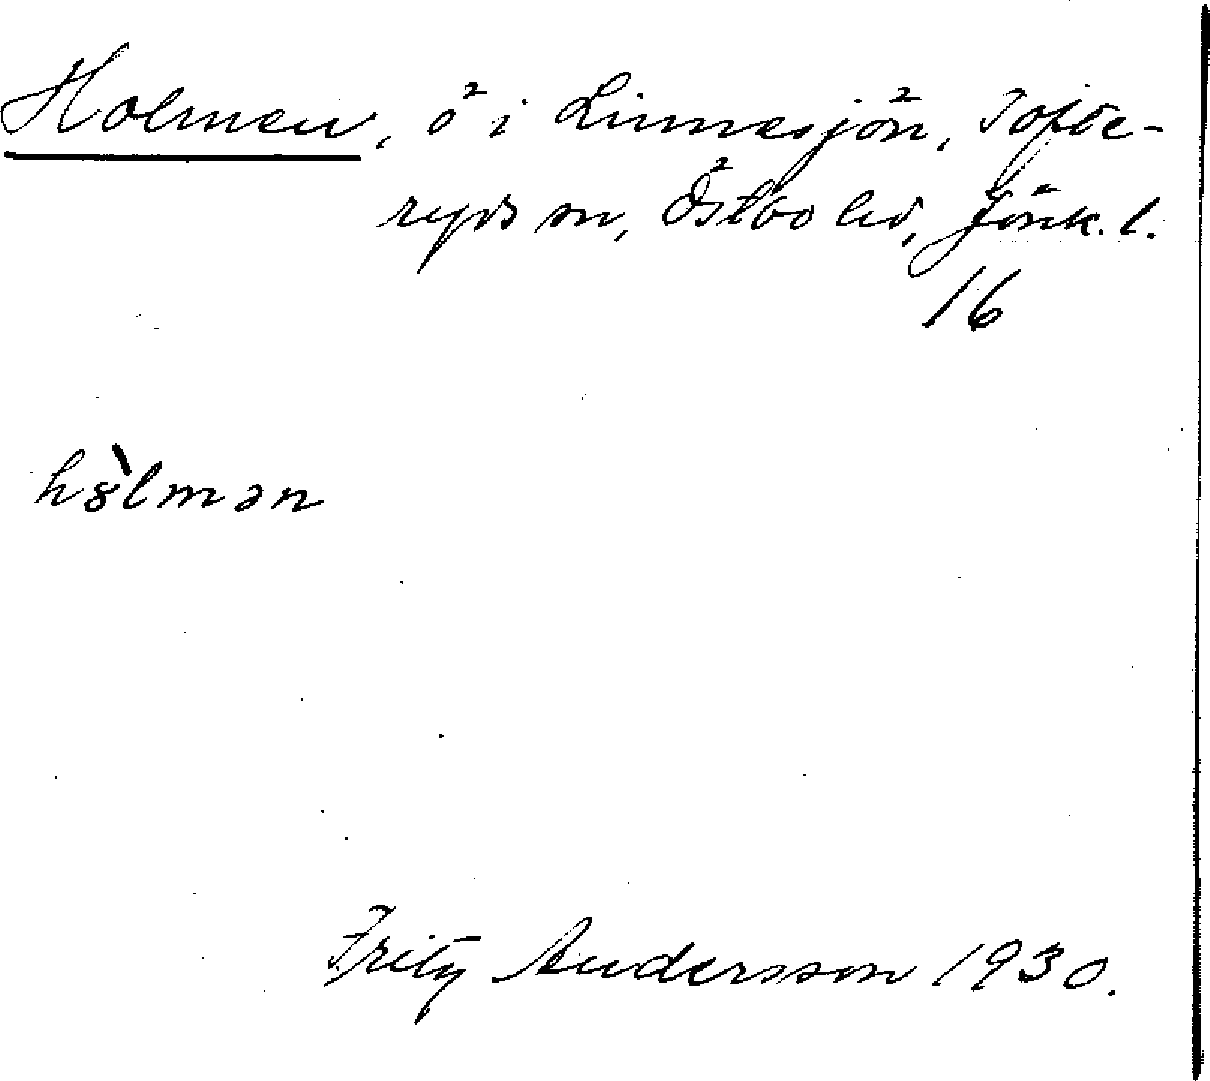 Holmen, ö i Linnesjön, Tofte-
ryds sn, Östbo hd, Jönk. l.
16
hȣ̀lmən
Fritz Andersson 1930.